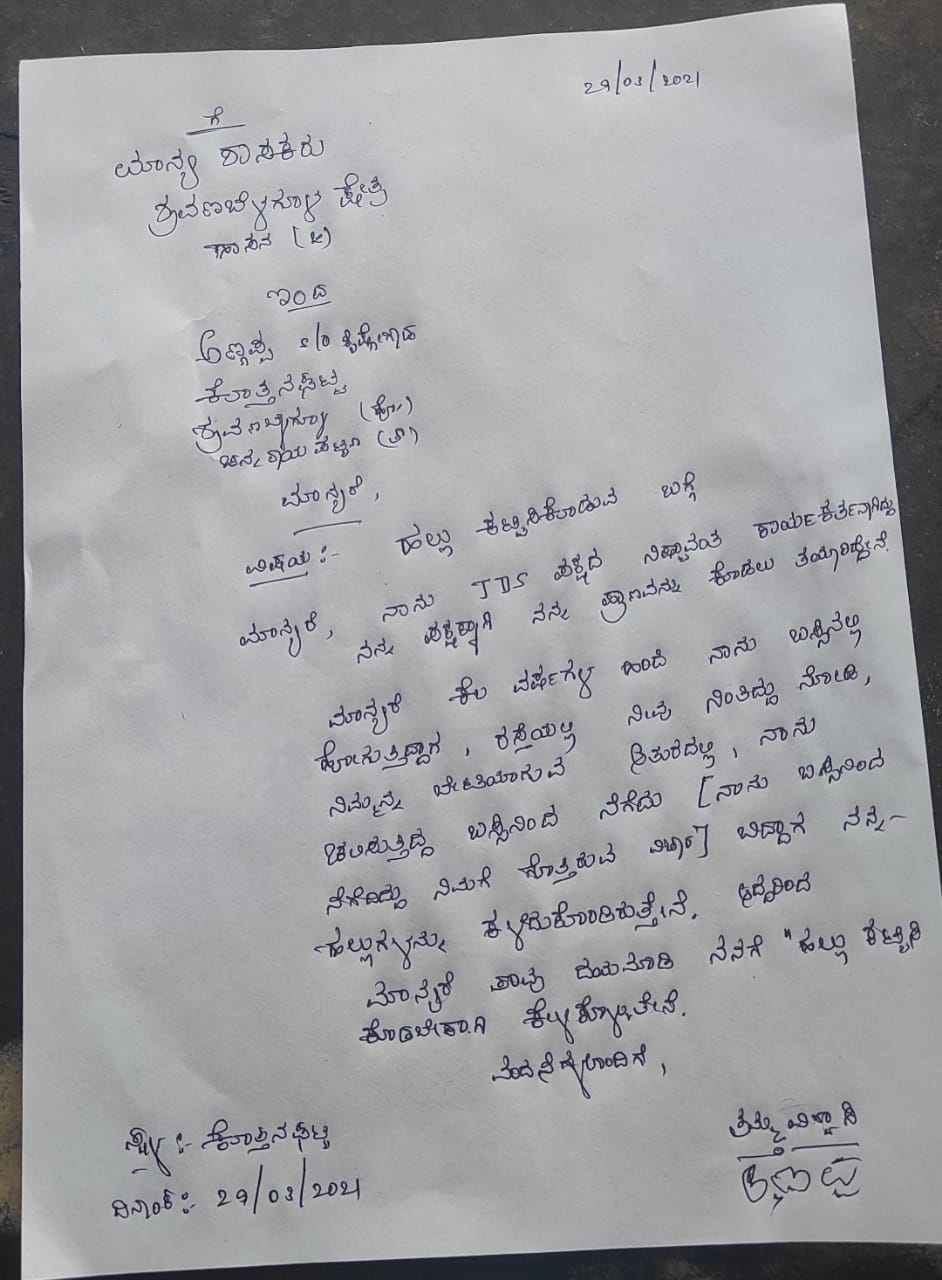 29/03/2021
ಗೆ
ಮಾನ್ಯ ಶಾಸಕರು
ಶ್ರವಣಬೆಳಗೊಳ ಕ್ಷೇತ್ರ
ಹಾಸನ (ಜಿ)
ಇಂದ
ಅಣ್ಣಪ್ಪ s/o
ಕೊತ್ತನಘಟ್ಟ
ಶ್ರವಣಬೆಳಗೊಳ (ಹೋ)
ಚನ್ನರಾಯಪಟ್ಟಣ (ತಾ)
ಮಾನ್ಯರೆ,
ವಿಷಯ :- ಹಲ್ಲು ಕಟ್ಟಿಸಿಕೊಡುವ ಬಗ್ಗೆ
ಮಾನ್ಯರೆ, ನಾನು JDS ಪಕ್ಷದ ನಿಷ್ಠಾವಂತ ಕಾರ್ಯಕರ್ತನಾಗಿದ್ದು
ನನ್ನ ಪಕ್ಷಕ್ಕಾಗಿ ನನ್ನ ಪ್ರಾಣವನ್ನು ಕೊಡಲು ತಯಾರಿದ್ದೇನೆ.
ಮಾನ್ಯರೆ ಕೆಲ ವರ್ಷಗಳ ಹಿಂದೆ ನಾನು ಬಸ್ಸಿನಲ್ಲಿ
ಹೋಗುತ್ತಿದ್ದಾಗ, ರಸ್ತೆಯಲ್ಲಿ ನೀವು ನಿಂತಿದ್ದು ನೋಡಿ,
ನಿಮ್ಮನ್ನ ಬೇಟಿಯಾಗುವ ಆತುರದಲ್ಲಿ, ನಾನು
ಚಲಿಸುತ್ತಿದ್ದ ಬಸ್ಸಿನಿಂದ ನೆಗೆದು [ನಾನು ಬಸ್ಸಿನಿಂದ
ನೆಗೆದಿದ್ದು ನಿಮಗೆ ಗೊತ್ತಿರುವ ವಿಚಾರ] ಬಿದ್ದಾಗ ನನ್ನ-
ಹಲ್ಲುಗಳನ್ನು ಕಳೆದುಕೊಂಡಿರುತ್ತೇನೆ. ಆದ್ದರಿಂದ
ಮಾನ್ಯರೆ ತಾವು ದಯಮಾಡಿ ನನಗೆ "ಹಲ್ಲು ಕಟ್ಟಿಸಿ
ಕೊಡಬೇಕಾಗಿ ಕೇಳಿಕೊಳ್ಳುತ್ತೇನೆ.
ವಂದನೆಗಳೊಂದಿಗೆ,
ಸ್ಥಳ :- ಕೊತ್ತನಘಟ್ಟ
ದಿನಾಂಕ :- 29/03/2021
ತಮ್ಮ ವಿಶ್ವಾಸಿ
ಅಣ್ಣಪ್ಪ